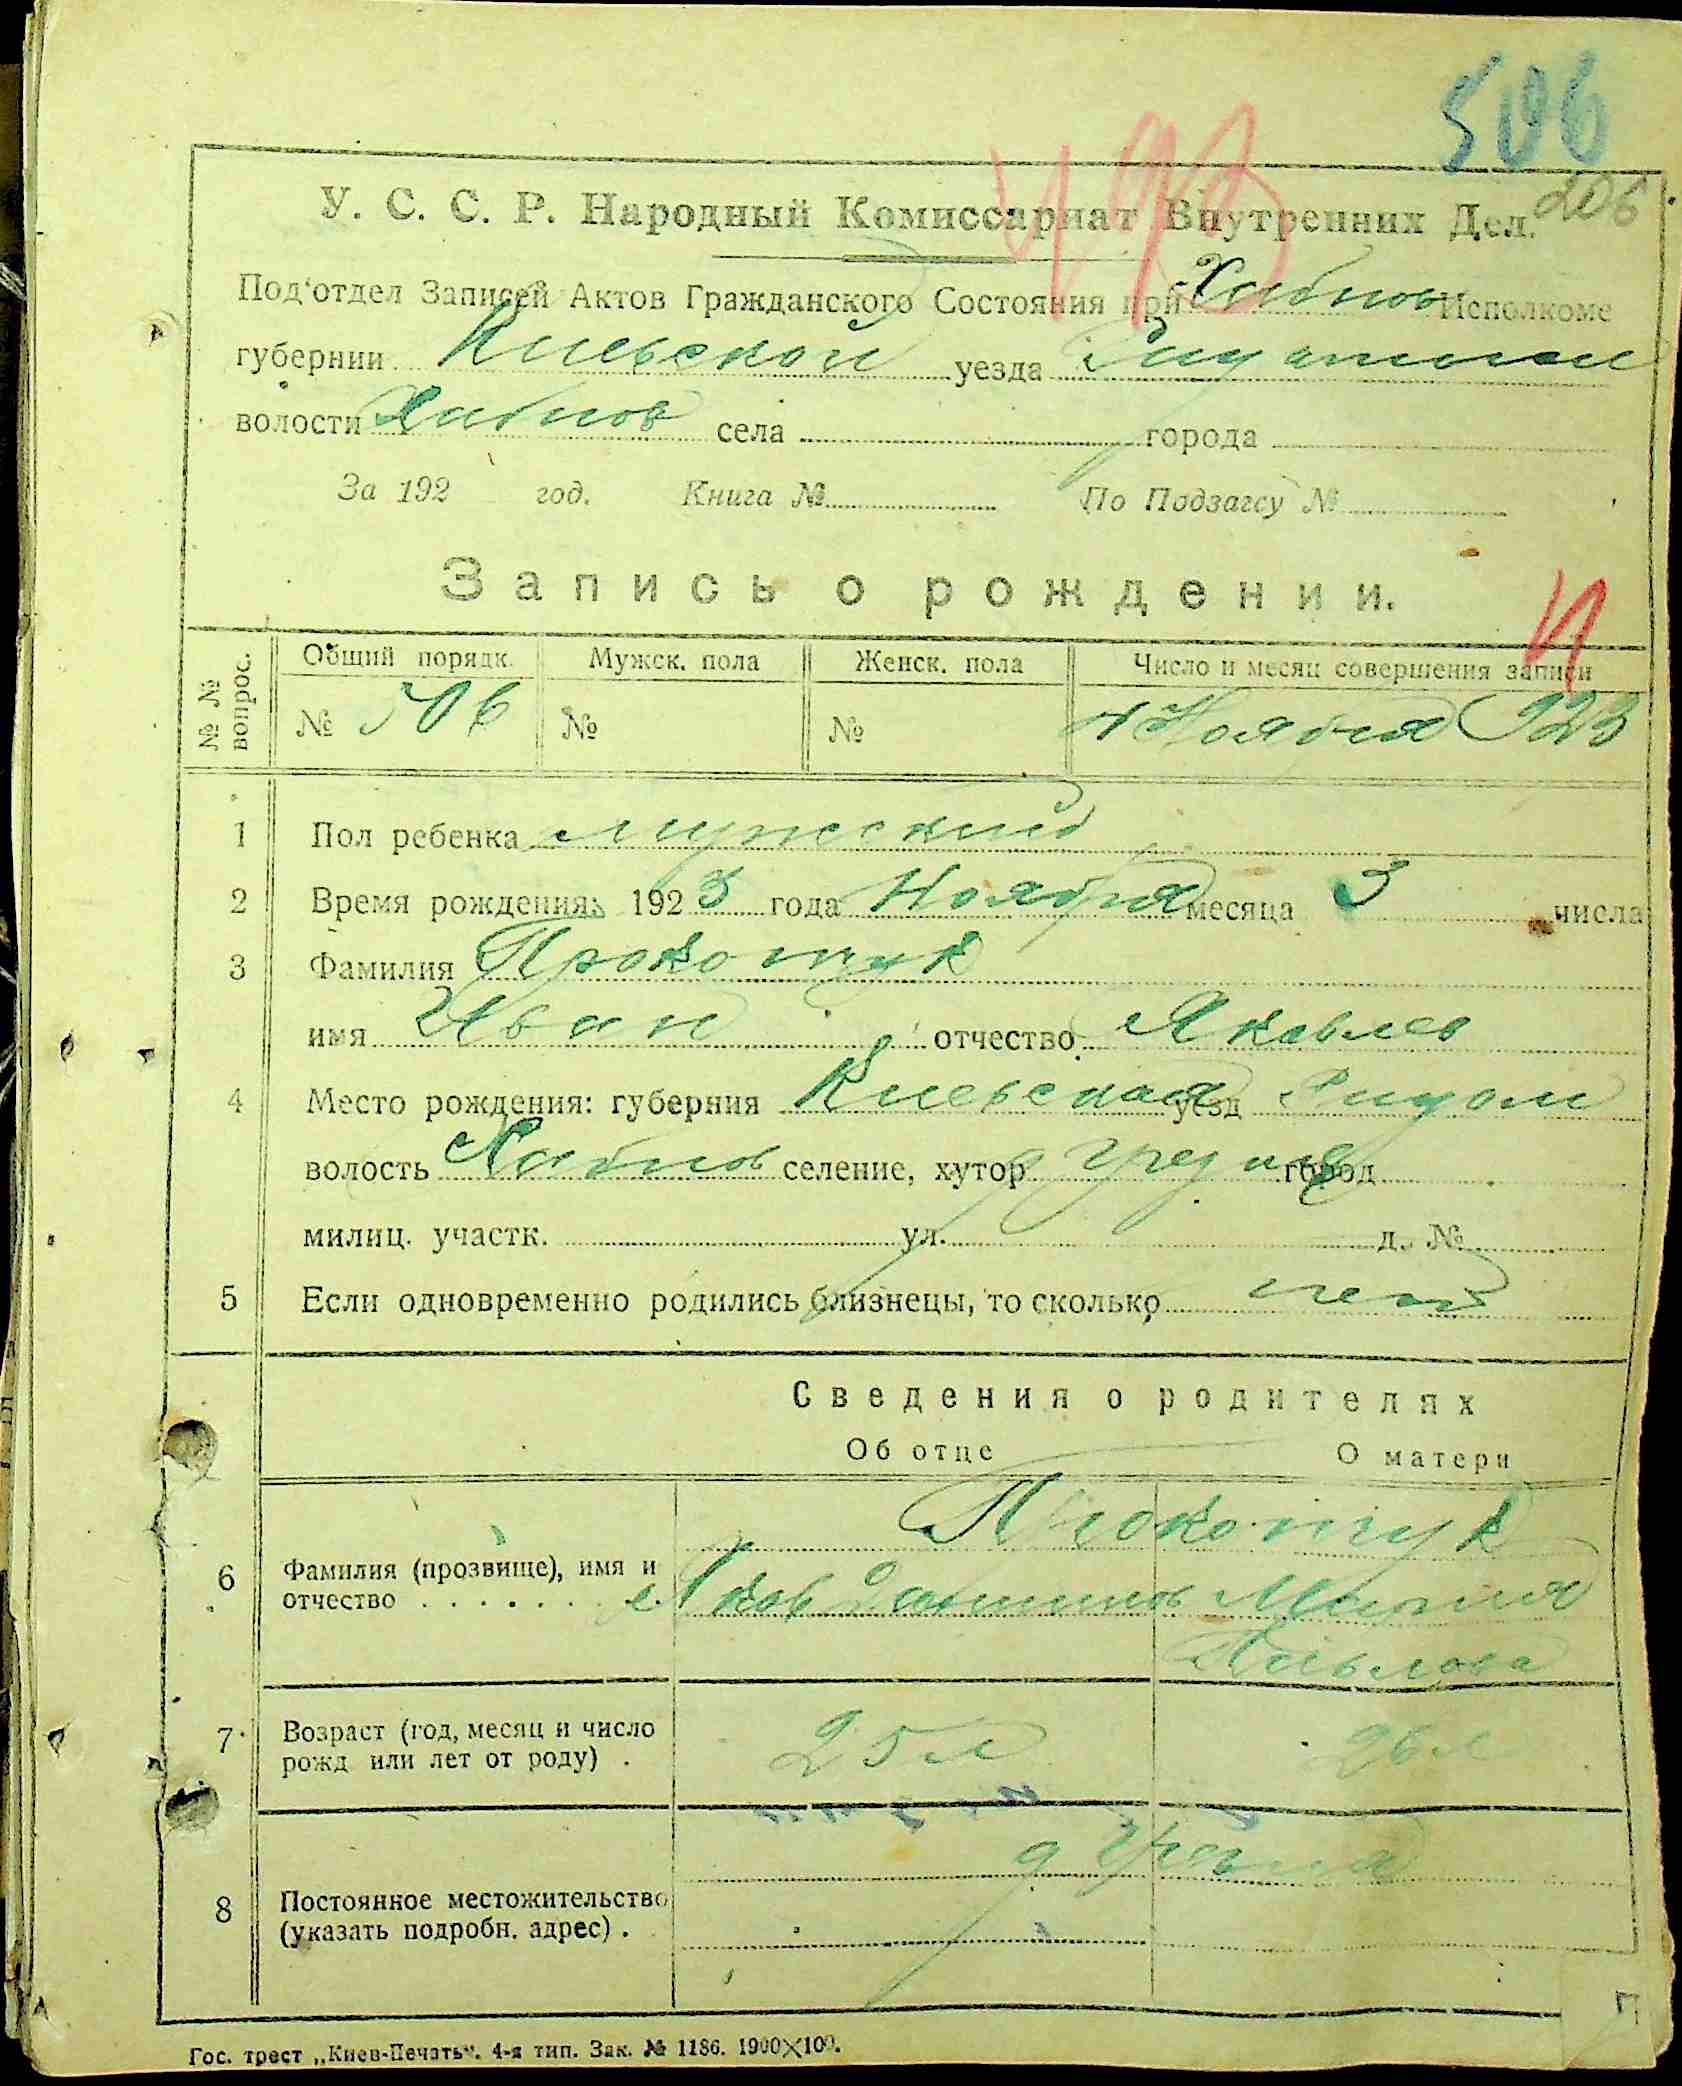 506
493
206
У. С. С. Р. Народный Комиссариат Внутренних Дел.
Под'отдел Записей Актов Гражданского Состояния при Хабнов Исполкоме
губернии Киевской уезда
волости Хабнов села города
За 192 год. Книга № По Подзагсу №
Запись о рождении.
И
№ № вопрос. Общий порядк. Мужск. пола Женск. пола Число и месяц совершения записи
№ 506 № № 4 Ноября 923
1 Пол ребенка мужеский
2 Время рождения: 1923 года Ноября месяца 3 числа
3 Фамилия
имя Иван отчество Яковлев
4 Место рождения: губерния Киевская уезд
волость Хабнов селение, хутор д город
милиц. участк. ул. д. №
5 Если одновременно родились близнецы, то сколько нет
Сведения о родителях
Об отце О матери
6 Фамилия (прозвище), имя и
отчество . . . . . . . Яков Мария
Павлова
7 Возраст (год, месяц и число
рожд или лет от роду) . 25 л 26 л
8 Постоянное местожительство
(указать подробн. адрес) . д
Гос. трест „Киев-Печать“. 4-я тип. Зак. № 1186. 1900×100.